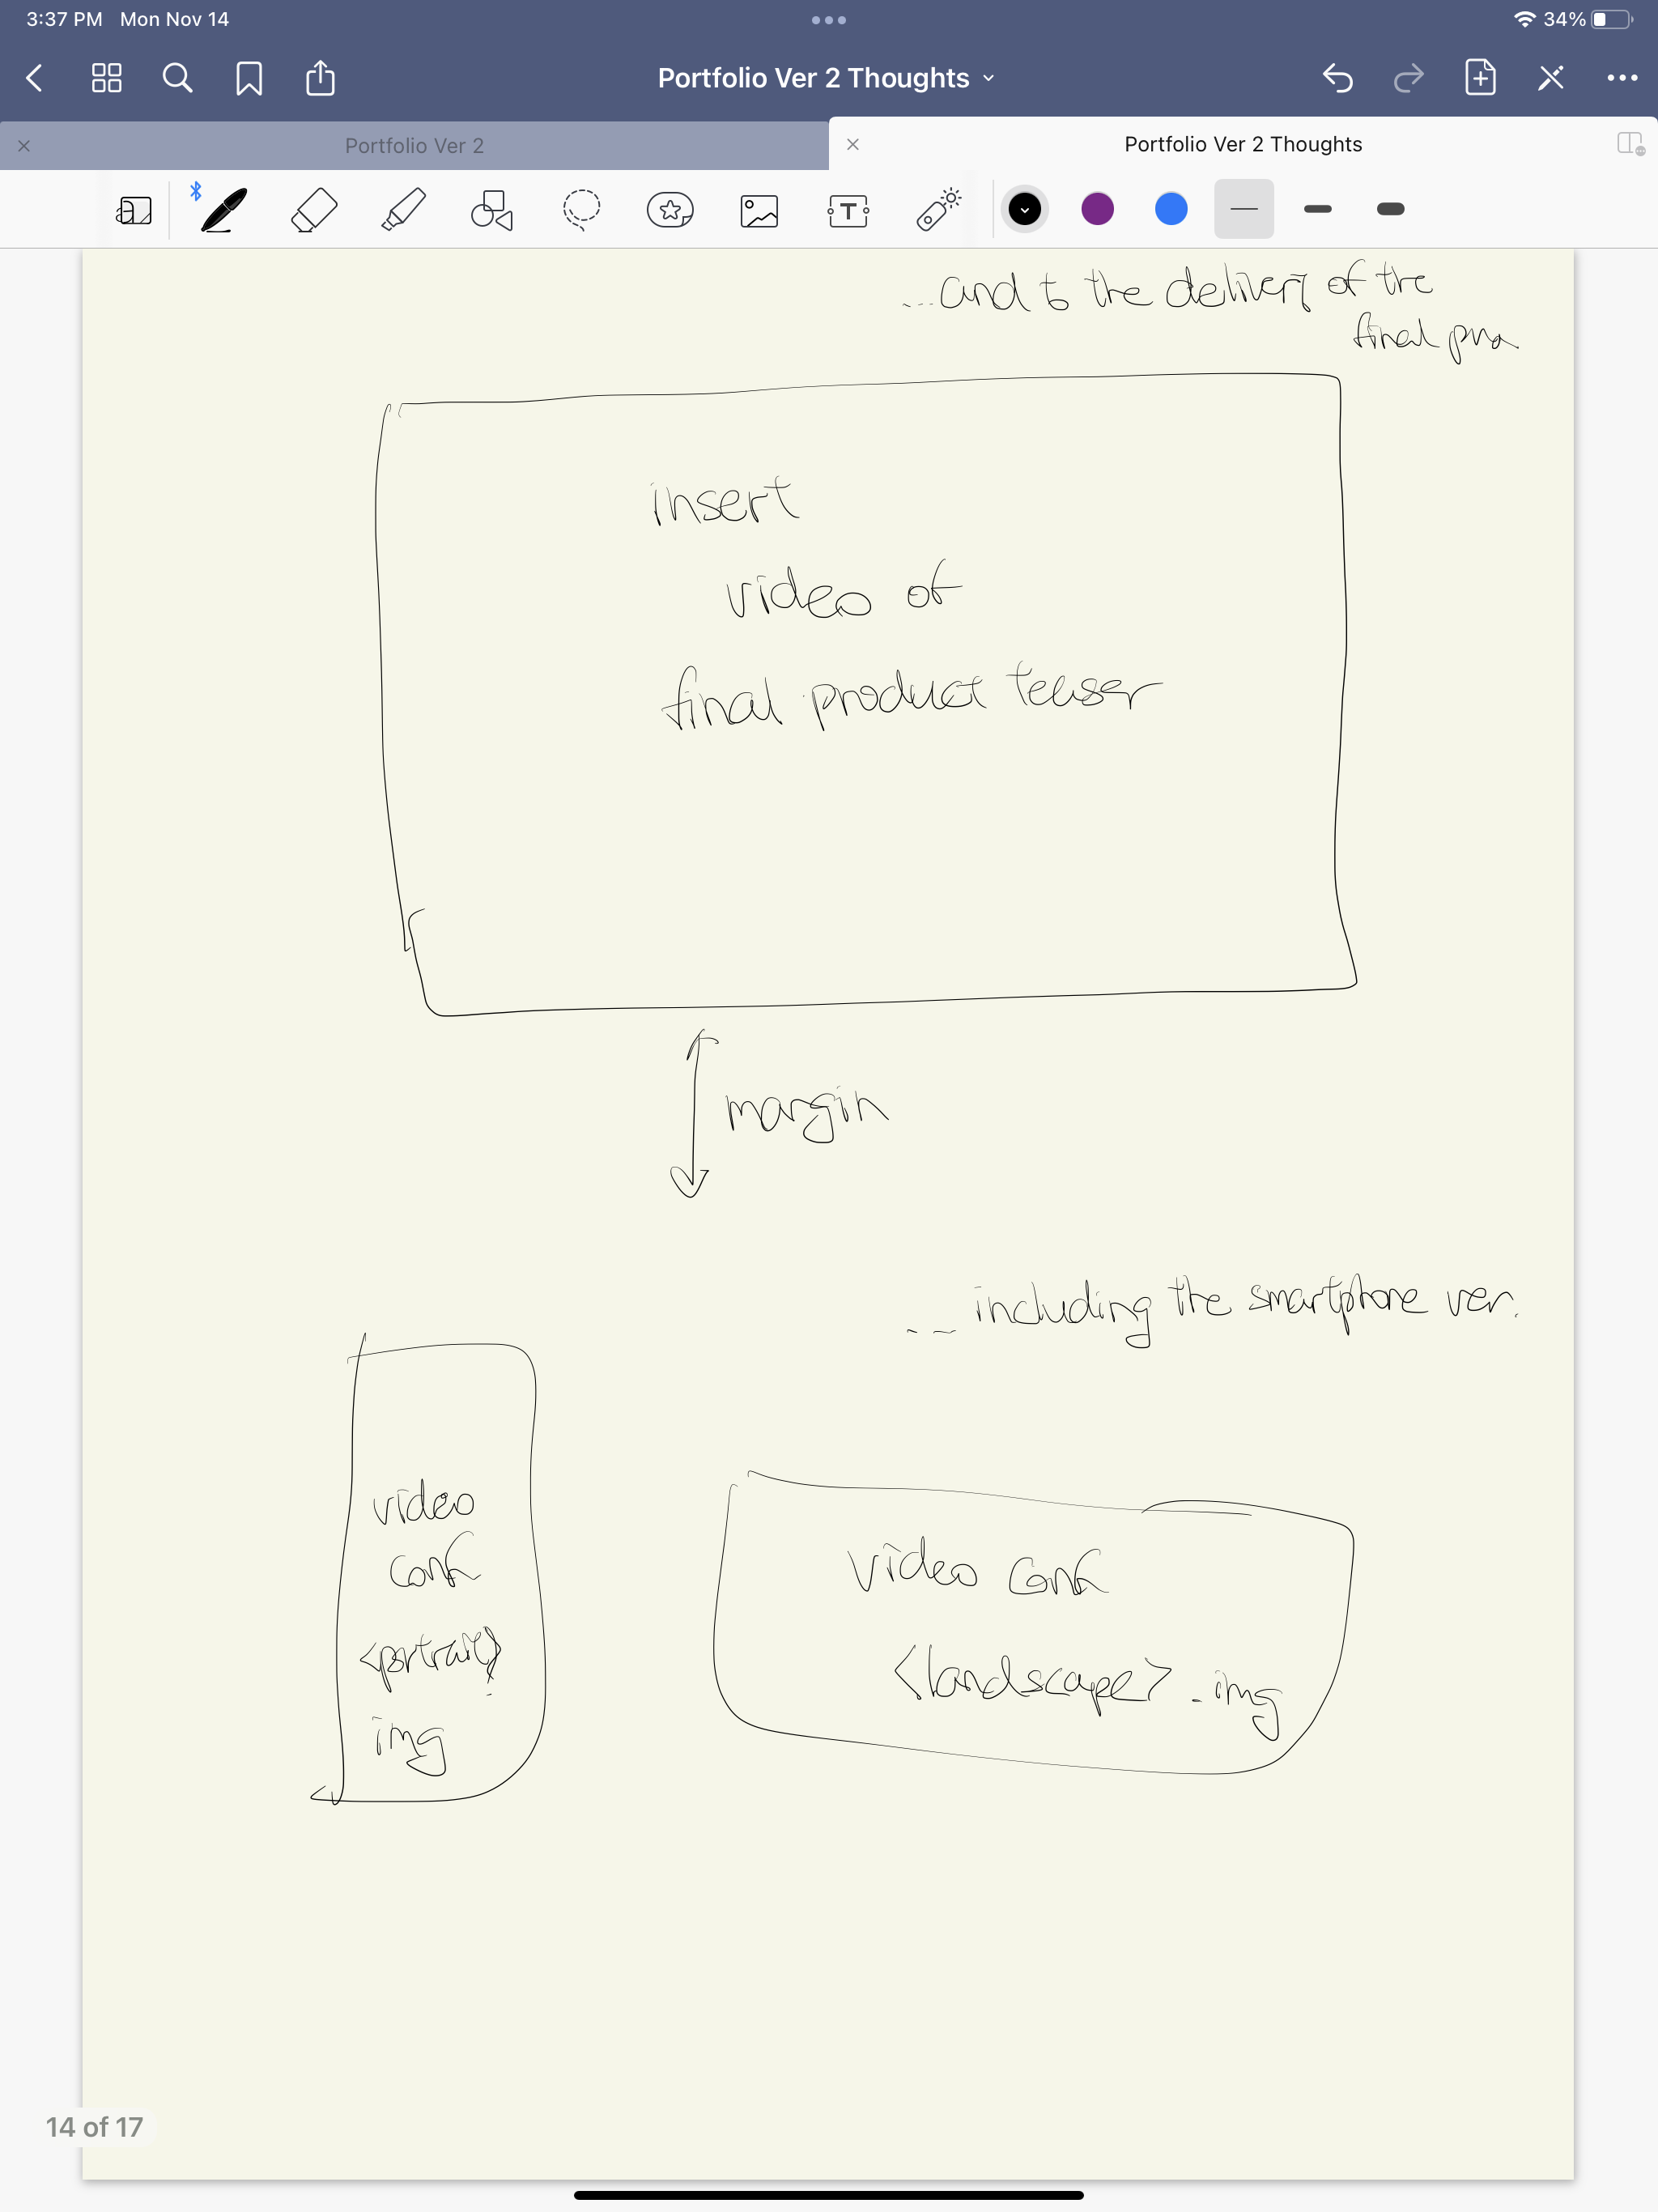 3:37 PM Mon Nov 14
34%
Portfolio Ver 2 Thoughts
Portfolio Ver 2
Portfolio Ver 2 Thoughts
T
...and to the delivery of the
final
insert
video of
final product teaser
margin
... including the smartphone ver.
video
conf
<portrait>
img
video conf
<landscape> - img
14 of 17